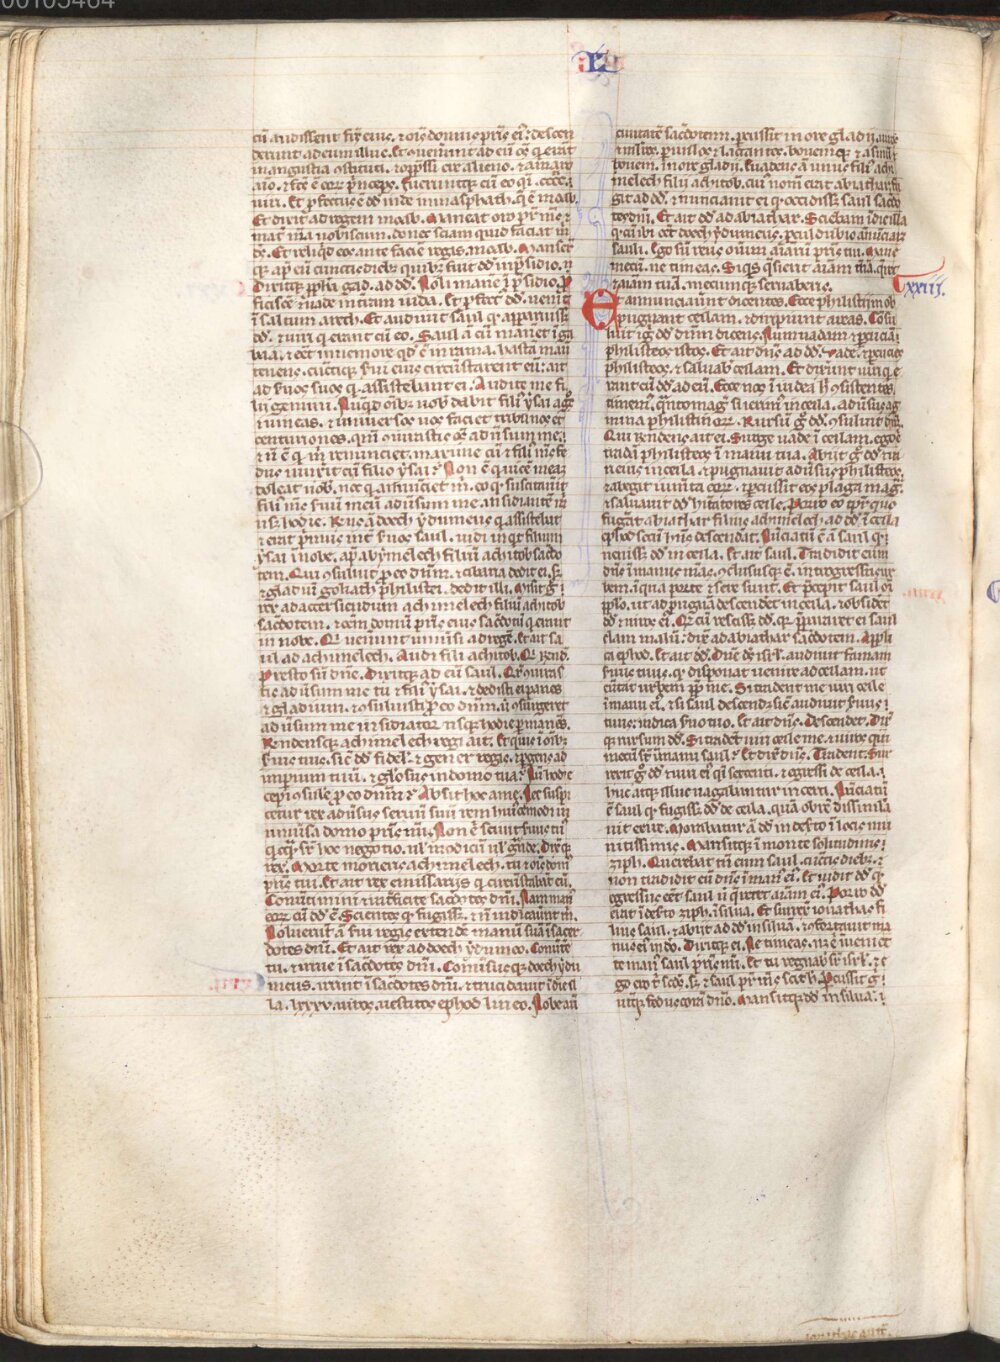 cũ audissent fr̃es eius. ⁊ om̃is domus pr̃is eiꝰ: descen
derunt ad eum illuc. Et ꝯuenerũt ad eũ om̃s q̃ erãt
in angustia ꝯstituti. ⁊ opp̃ssi ere alieno. ⁊ amaro
aĩo. ⁊ fc̃s ẽ eoꝝ p̃nceps. fueruntq; cũ eo q̃i .cccc.ti
uiri. Et ꝓfectus ẽ dd̃ inde in masphath. q̃ ẽ moab.
Et dixit ad regem moab. Maneat oro pr̃ m̃s ⁊
mat̃ m̃a nobiscum. donec sciam quid faciat m̃
ds̃. Et reliq̃d eos ante faciẽ regis moab. Manser̃t
q; ap̃ eũ cunctis diebꝫ quibꝫ fuit dd̃ in p̃sidio.
dixitq; ꝓph̃a gad. ad dd̃. Noli manere ĩ p̃sidio. ꝓ
ficisce⁊ ⁊ uade in t̃ram iuda. Et ꝓfect̃ dd̃. uenit
ĩ saltum areth. Et audiuit saul q̃ apparuiss̃
dd̃. ⁊ uiri q̃ erant cũ eo. Saul aũ cũ maner̃ ĩ ga
baa. ⁊ eẽt in nemore qd̃ ẽ in rama. hasta manu
tenens. cũctiq; s̃ui eius circũstarent eũ: ait
ad s̃uos suos q̃ assistebant ei. Audite me fi
lij gemini. Nũq̃d om̃ibꝫ uob̃ dabit filiꝰ ysai agros
⁊ uineas. ⁊ uniuersos uos faciet tribunos ⁊
centuriones. qm̃ ꝯiurastis om̃s aduˀsum me.
⁊ ñ ẽ q̃ m̃ renunciet. maxime cũ ⁊ filiꝰ m̃s fe
dus iunxerit cũ filio ysai? Non ẽ q̃ uicẽ meaꝫ
doleat ex uob̃. nec q̃ annunciet m̃. eo q̃ suscitauit
filiꝰ m̃s s̃uũ meũ aduˀsum me. insidiantẽ m̃
usq; hodie. Rñs aũ doech ydumeus q̃ assistebat
⁊ erat p̃mus int̃ s̃uos saul. uidi inq̃t filium
ysai in nobe. ap̃ abymelech filiũ achitob sac̃do
tem. Qui ꝯsuluit ꝓ eo dñm. ⁊ cibaria dedit ei. sꝫ
⁊ gladium goliath philistei. dedit illi. Misit g̃
rex ad accersiendum achimelech filiũ achitob
sac̃dotem. ⁊ om̃em domũ pr̃is eius sac̃dotũ q̃ erant
in nobe. Qi uenerunt uniũsi ad regẽ. Et ait sa
ul ad achimelech. Audi fili achitob. Qi r̃nd.
Presto sũ dñe. Dixitq; ad eũ saul. Q̃r ꝯiuras
tis aduˀsum me tu ⁊ filiꝰ ysai. ⁊ dedisti ei panes
⁊ gladium. ⁊ ꝯsuluisti ꝓ eo dñm. ut ꝯsurgeret
aduˀsum me insidiator usq; hodie ꝑmanẽs.
Rñdensq; achimelech regi ait. Et quis ĩ om̃ibꝫ
s̃uis tuis. sic̃ dd̃ fidelꝭ. ⁊ gener regis. ⁊ ꝑgens ad
imperium tuũ. ⁊ gl̃osus in domo tua? Nũ hodie
cepi ꝯsulere ꝓ eo dñm? Absit hoc a me. Nec suspi
cetur rex aduˀsus seruũ suũ rem huiꝰcemodi in
uniuˀsa domo pr̃is mei. Non ẽ sciuit s̃uus tuꝰ
q̃cq̃ sr̃ hoc negotio. ul̃ modicũ ul̃ grãde. Dixitq;
rex. Morte morieris achimelech. tu ⁊ om̃is domꝰ
pr̃is tui. Et ait rex emissariis q̃ circũstabãt eũ.
Conuˀtimini ⁊ inˀficite sac̃dotes dñi. Nam manꝰ
eoꝝ cũ dd̃ ẽ. Scientes q̃ fugiss̃. ⁊ ñ indicauer̃t m̃.
Noluerũt aũ s̃ui regis extendẽ manũ suã ĩ sac̃
dotes dñi. Et ait rex ad doech ydumeo. Conuˀte
tu. ⁊ irrue ĩ sac̃dotes dñi. Conuˀsusq; doech ydu
meus. irruit ĩ sac̃dotes dñi. ⁊ trucidauit ĩ die il
la .lxxxv. uiros. uestitos ephod lineo. Nobe aũ
ciuitatẽ sac̃dotum. ꝑcussit in ore gladii uiros
⁊ mulieres. ꝑuulos ⁊ lactantes. bouemq; ⁊ asinũ
⁊ ouem. in ore gladii. Euadens aũ unus filiꝰ achi
melech filii achitob. cuiꝰ nom̃ erat abiathar. fu
git ad dd̃. ⁊ nunciauit ei q̃ occidiss̃ saul sac̃do
tes dñi. Et ait dd̃ ad abiathar. Sciebam ĩ die illa
q̃ cũ ibi eẽt doech ydumeus. ꝓcul dubio ãnunciar̃
sauli. Ego sũ reus om̃ium aĩarũ pr̃is tui. Mane
mecũ. ne timeas. Siq̃s q̃sierit aĩam meã. quer̃
⁊ aĩam tuã. mecumq; seruaberis.
xxiij.
Et annunciauer̃t dd̃ dicentes. Ecce philistiim ob
pugnant ceilam. ⁊ diripiunt areas. Cõsu
luit g̃ dd̃ dñm dicens. Num uadam ⁊ ꝑcutiã
philisteos istos. Et ait dñs ad dd̃. Vade. ⁊ ꝑcuties
philisteos. ⁊ saluabis ceilam. Et dixer̃t uiri q̃ e
rant cũ dd̃ ad eũ. Ecce nos ĩ iudea hic ꝯsistentes
timem̃. q̃nto mag̃ si ierim̃ in ceila. aduˀsus ag
mina philistinoꝝ. Rursũ g̃ dd̃. ꝯsuluit dñm.
Qui rñdens ait ei. Surge uade ĩ ceilam. ego eĩ
tradã philisteos ĩ manu tua. Abiit g̃ dd̃ ⁊ ui
ri eius in ceila. ⁊ pugnauit aduˀsus philisteos.
⁊ abegit iumta eoꝝ. ⁊ ꝑcussit eos plaga mag̃.
⁊ saluauit dd̃ hĩtatores ceile. Porro eo tpr̃e quo
fugiebat abiathar filius achimelech ad dd̃ ĩ ceila
ephod secũ hñs descendãt. Nũciatũ ẽ aũ saul q̃
ueniss̃ dd̃ in ceila. Et ait saul. Tradidit eum
dñs ĩ manus meas. ꝯclususq; ẽ. introgressus ur
bem. ĩ qua porte ⁊ sere sunt. Et p̃cepit saul om̃i
ppl̃o. ut ad pugnã descendet̃ in ceila. ⁊ obsidet̃
dd̃ ⁊ uiros eiꝰ. Qd̃ cũ resciss̃ dd̃. q̃ p̃pararet ei saul
clam malũ: dix̃ ad abiathar sac̃dotem. Appli
ca ephod. Et ait dd̃. Dñe ds̃ isrl̃. audiuit famam
s̃uus tuus. q̃ disponat uenire ad ceilam. ut
eũtat urbem ꝓp̃ me. Si tradent me uiri ceile
ĩ manꝰ eiꝰ. ⁊ si saul descendet sic̃ audiuit s̃uus
tuus. indica s̃uo tuo. Et ait dñs. Descendet. Dix̃
q; rursum dd̃. Si tradẽt uiri ceile me. ⁊ uiros qui
mecũ st̃ ĩ manũ saul? Et dix̃ dñs. Tradent. Sur
rexit g̃ dd̃ ⁊ uiri eiꝰ q̃si sexcenti. ⁊ egressi de ceila.
huc atq; illuc uagabantur incerti. Nũciatũ
ẽ saul q̃ fugiss̃ dd̃ de ceila. quã obrẽ dissimula
uit exire. Morabatur aũ dd̃ in des̃to ĩ locis mu
nitissimis. Mansitq; ĩ monte solitudinis
ziph. Querebat tñ eum saul. cũctis diebꝫ. ⁊
non tradidit eũ dñs ĩ manꝰ eiꝰ. Et uidit dd̃ q̃
egressus eẽt saul ut q̃reret aĩam eiꝰ. Porro dd̃
erat ĩ des̃to ziph. ĩ silua. Et surrex̃ ionathas fi
lius saul. ⁊ abiit ad dd̃ in siluã. ⁊ ꝯfortauit ma
nus eiꝰ in dõ. Dixitq; ei. Ne timeas. neq; eĩ inueniet
te manꝰ saul pr̃is mei. Et tu regnabꝭ sr̃ isrl̃. ⁊ e
go ero t̃ scd̃s. sꝫ ⁊ saul pr̃ m̃s scit h̃. Percussit g̃
ut̃q; fedus corã dño. Mansitq; dd̃ in silua.